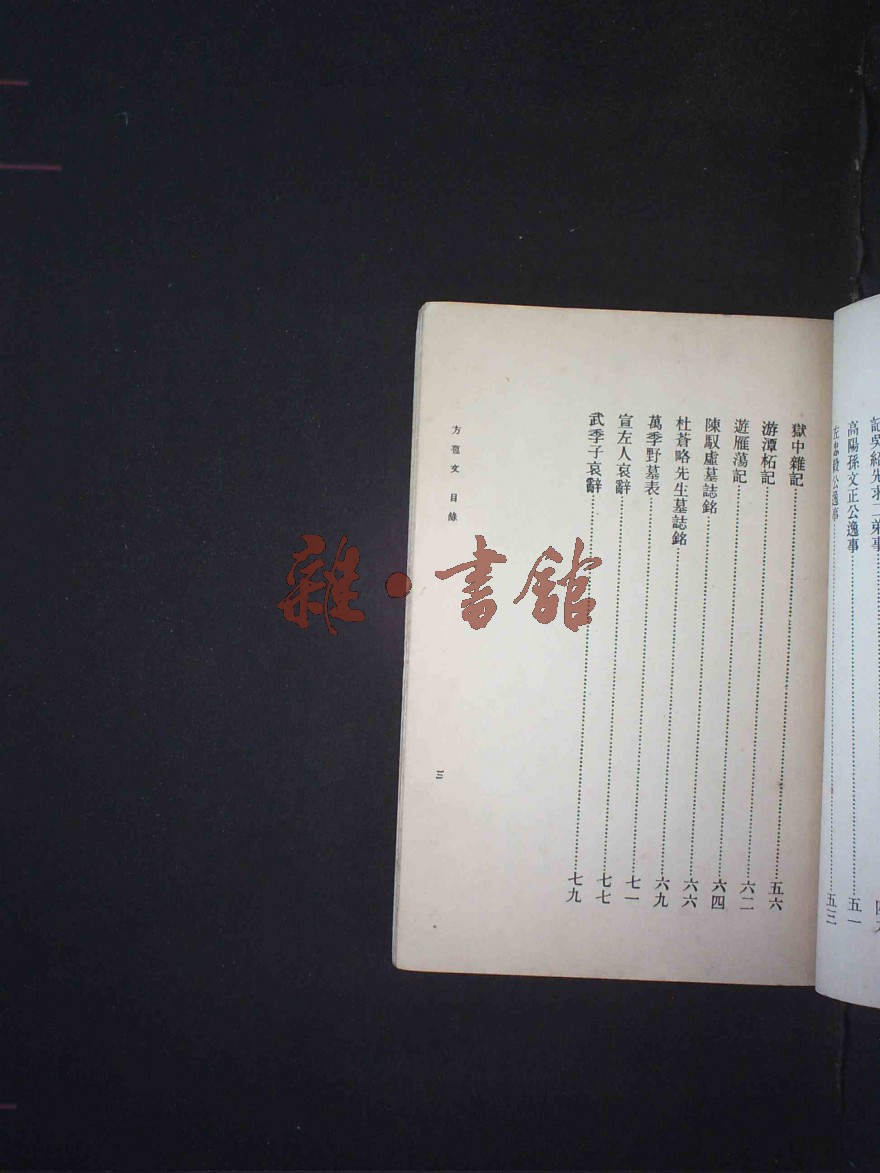 記吳紹先求二弟事
高陽孫文正公逸事……五一
左忠毅公逸事……五三
獄中雜記……五六
游潭柘記……六二
遊雁蕩記……六四
陳馭虛墓誌銘……六六
杜蒼略先生墓誌銘……六九
萬季野墓表……七一
宣左人哀辭……七七
武季子哀辭……七九
方苞文 目錄 三
雜·書館